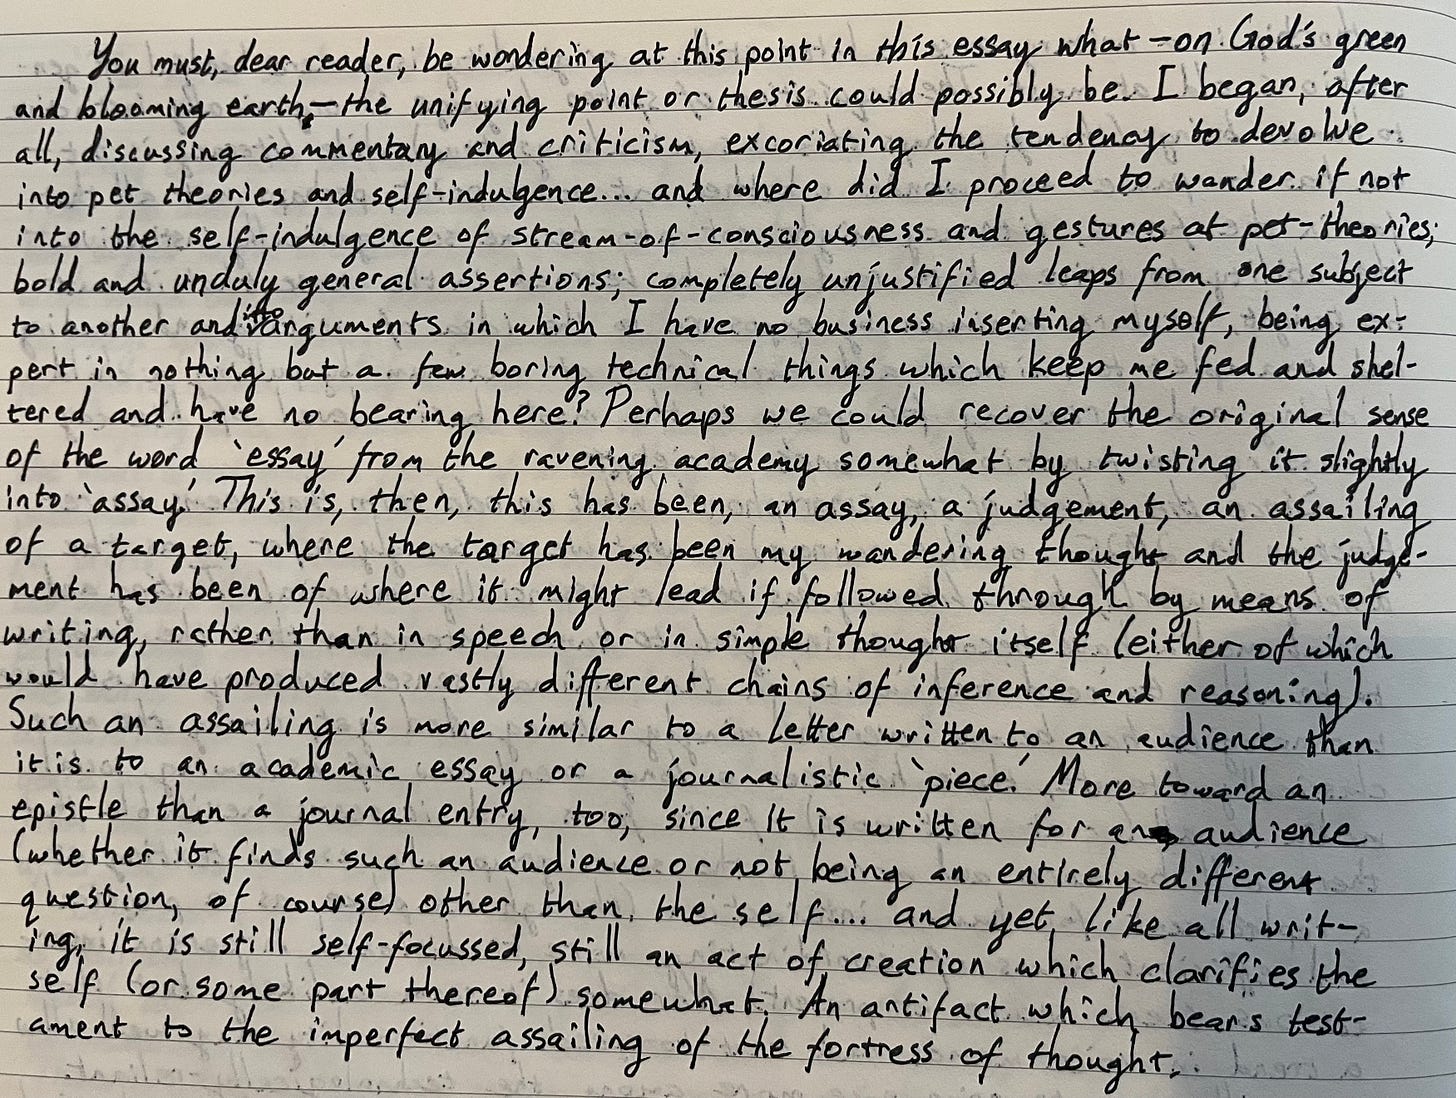 You must, dear reader, be wondering at this point in this essay what – on God's green
and blooming earth, – the unifying point or thesis could possibly be. I began, after
all, discussing commentary and criticism, excoriating the tendency to devolve
into pet theories and self-indulgence... and where did I proceed to wander if not
into the self-indulgence of stream-of-consciousness and gestures at pet-theories;
bold and unduly general assertions; completely unjustified leaps from one subject
to another and into arguments in which I have no business inserting myself, being ex-
pert in nothing but a few boring technical things which keep me fed and shel-
tered and have no bearing here? Perhaps we could recover the original sense
of the word 'essay' from the ravening academy somewhat by twisting it slightly
into 'assay.' This is, then, this has been, an assay, a judgement, an assailing
of a target, where the target has been my wandering thought and the judge-
ment has been of where it might lead if followed through by means of
writing, rather than in speech or in simple thought itself (either of which
would have produced vastly different chains of inference and reasoning).
Such an assailing is more similar to a letter written to an audience than
it is to an academic essay or a journalistic 'piece.' More toward an
epistle than a journal entry, too, since it is written for an audience
(whether it finds such an audience or not being an entirely different
question, of course) other than the self... and yet, like all writ-
ing, it is still self-focussed, still an act of creation which clarifies the
self (or some part thereof) somewhat. An antifact which bears test-
ament to the imperfect assailing of the fortress of thought.